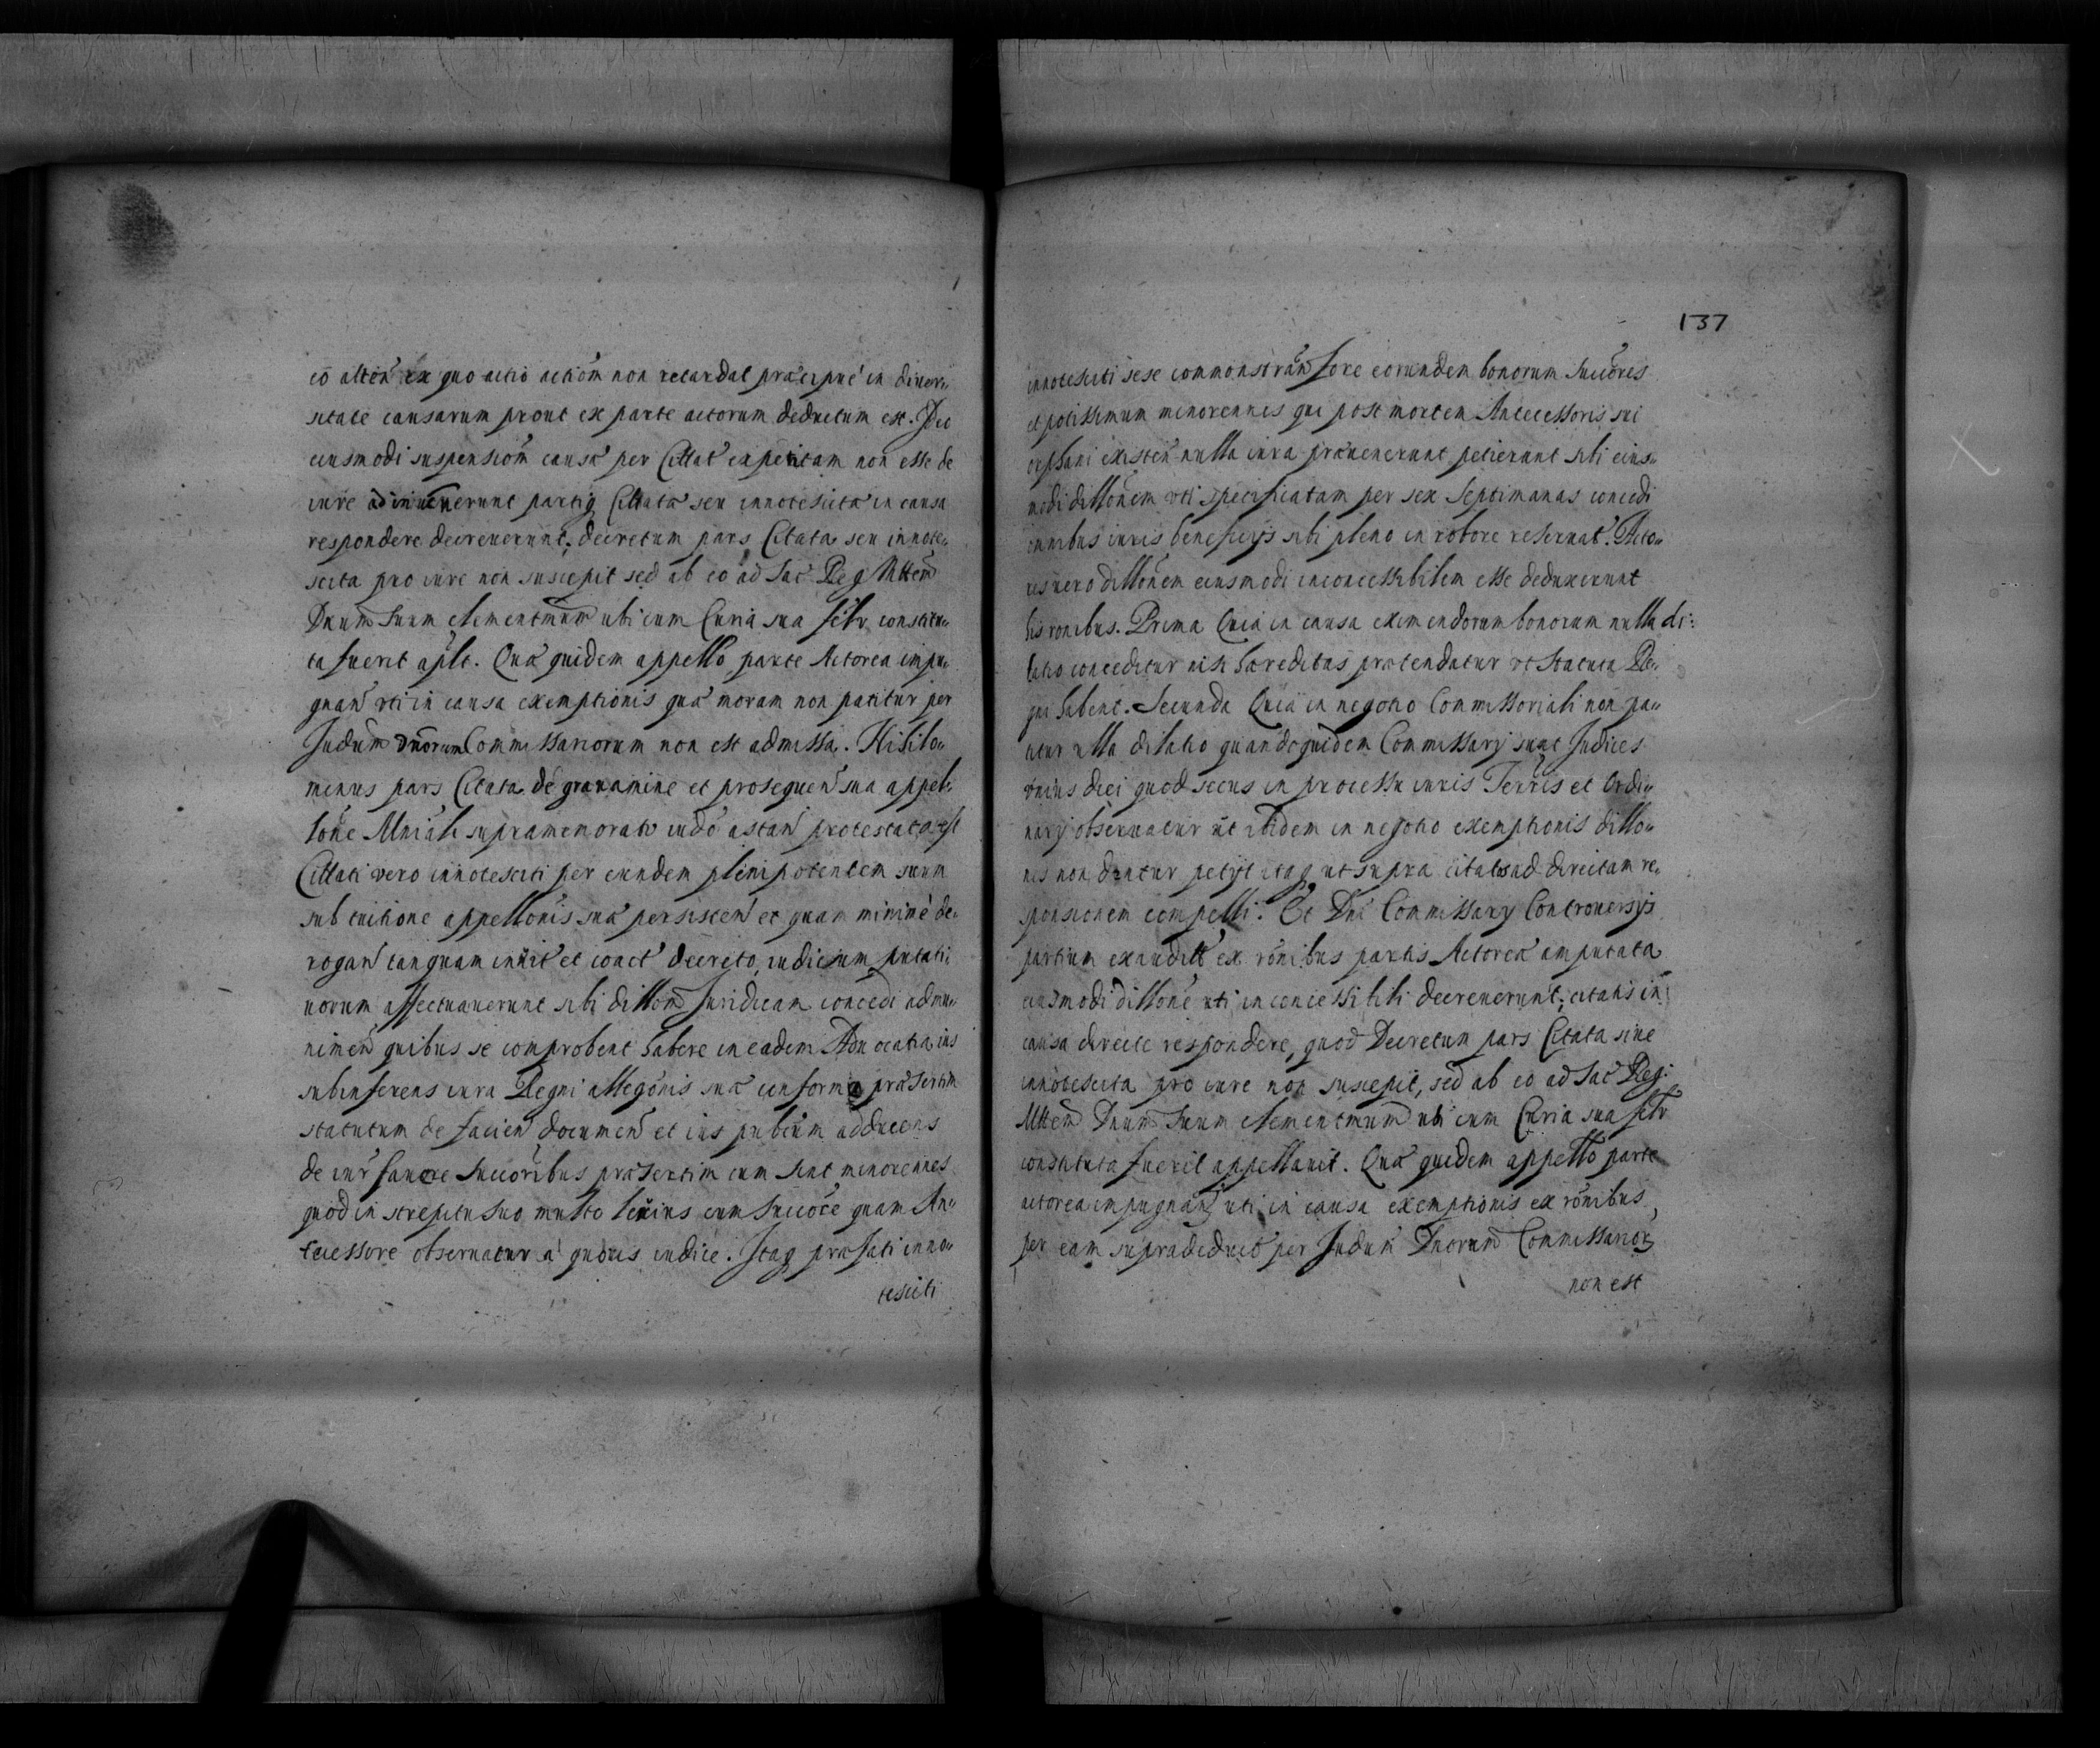 eo alten ex quo actio actiom non retardat praecipue in diuer„
sitate causarum prout ex parte actorum deductum est. Dec
eiusmodi suspensiom causae per Cittat expetitam non esse de
iure adinuenerunt partiq Cittatae seu innotescitae in causa
respondere decreuerunt, decretum pars Citata seu innote„
scita pro iure non suscepit sed ab eo ad Sac Reg Mttem
Dnum suum clementmum ubi cum Curia sua felr constitu„
ta fuerit aplt. Qua quidem appello parte Actorea impu„
gnan uti in causa exemptionis quae moram non patitur per
Judum Dnorum Commissariorum non est admissa. Nihilo„
minus pars Citata de grauamine et prosequen sua appel„
lone Mniali supramemorato iudo astan protestata est
Cittati vero innotesciti per eundem plenipotentem suum
sub tuitione appellonis suae persisten et quam minime de„
rogan tanquam inuit et coact decreto, iudicium putati„
uorum affectuauerunt sibi dillom Juridicam concedi ad mu„
nimen quibus se comprobent habere in eadem Aduocatia ius
subinferens iura Regni allegonis suae conforma praesertim
statutum de facien documen et ius publum adducens
de iur fauere succoribus praesertim cum sint minorennes
quod in strepitu suo multo leuius cum succore quam An„
tecessore obseruatur a quouis iudice. Itaq praefati inno„
tesciti
137
innotesciti sese commonstran fore eorundem bonorum succores
et potissimum minorennes qui post mortem Antecessoris sui
orphani existen nulla iura praeuenerunt petierunt sibi eius„
modi dillonem uti specificatam per sex septimanas concedi
omnibus iuris beneficijs sibi pleno in robore reseruat. Acto„
res vero dillonem eiusmodi inconcessibilem esse deduxerunt
his ronibus. Prima Quia in causa eximendorum bonorum nulla di:
latio conceditur nisi haereditas praetendatur ut Statuta Re„
gni habent. Secunda Quia in negotio Commissoriali non pa„
titur ulla dilatio quandoquidem Commissarij sunt Judices
unius diei quod secus in processu iuris Terris et Ordi„
narij obseruatur ut ibidem in negotio exemptionis dillo„
nis non dantur petijt itaq ut supra citatos ad directam re„
sponsionem compelli. Et Dni Commissarij Controuersijs
partium exaudit ex ronibus partis Actoreae amputata
eiusmodi dillone uti inconcessibili decreuerunt, citatis in
causa directe respondere, quod Decretum pars Citata siue
innotescita pro iure non suscepit, sed ab eo ad Sac Reg:
Mttem Dnum suum clementmum ubi cum Curia sua feltr
constituta fuerit appellauit. Qua quidem appello parte
actorea impugnan uti in causa exemptionis ex ronibus
per eam supradeduct per Judum Dnorum Commissarior
non est